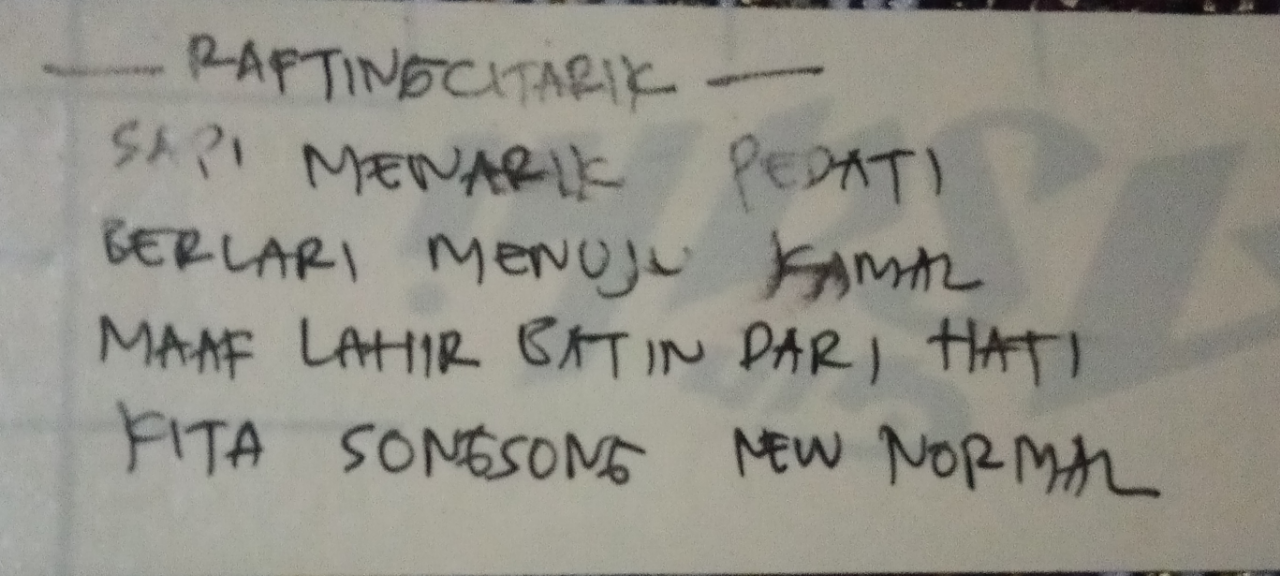 — RAFTINGCITARIK —
SAPI MENARIK PEDATI
BERLARI MENUJU KAMAL
MAAF LAHIR BATIN DARI HATI
KITA SONGSONG NEW NORMAL